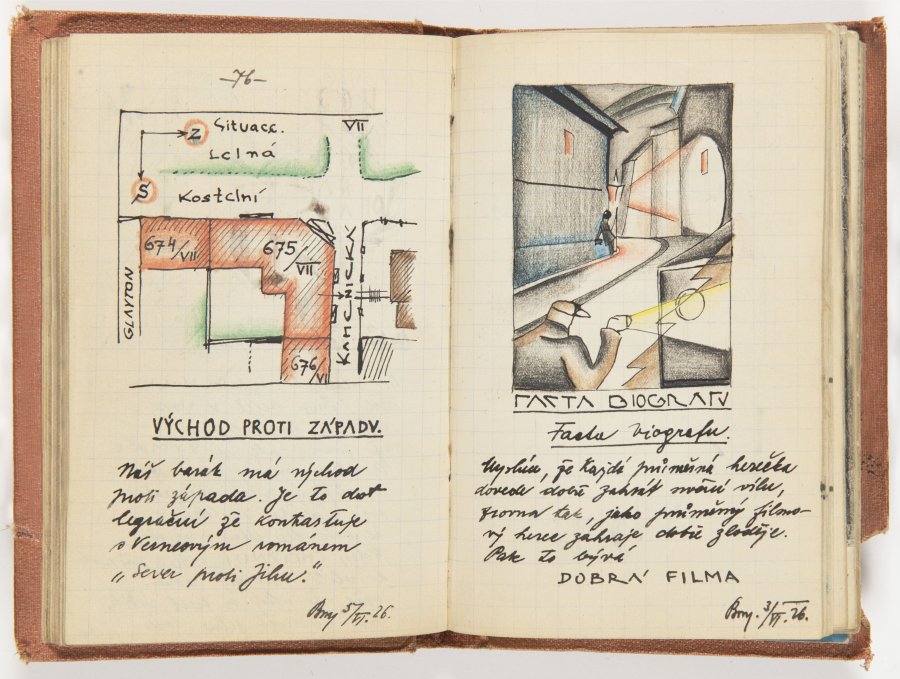 -76-
Z
Situace.
Letná
VII
S
Kostelní
674/VII
675/VII
GLAYTON
KAMENICKÁ
676/VI
VÝCHOD PROTI ZÁPADU.
Náš barák má východ
proti západu. Je to dost
legrační že kontrastuje
s Verneovým románem
„Sever proti Jihu."
Bruj 5/VI. 26.
FACTA BIOGRAFU
Facta biografu.
Myslím, že každá průměrná herečka
dovede dobře zahrát noční vílu,
zrovna tak, jako průměrný filmo-
vý herec zahraje dobře zloděje.
Pak to bývá
DOBRÁ FILMA
3/VI. 26.